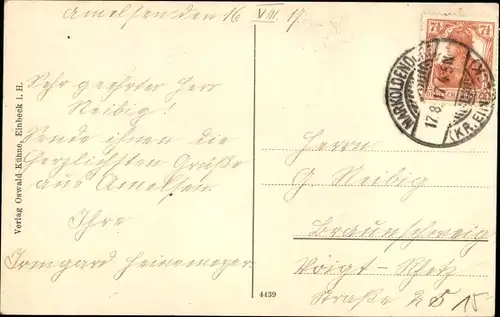 Amelsen den 16 VIII. 17.
Sehr geehrter Herr
Reibig!
Sende ihnen die
herzlichsten Grüße
aus Amelsen.
Ihre
Irmgard Heinemeyer.
Verlag Oswald Kühne, Einbeck i. H.
4439
7½ 7½
MARKOLDENDORF
17.8.17. 4-5N.
(KR. EINBECK)
Herrn
G Reibig
Braunschweig
Voigt-Rhetz
Straße 25 15